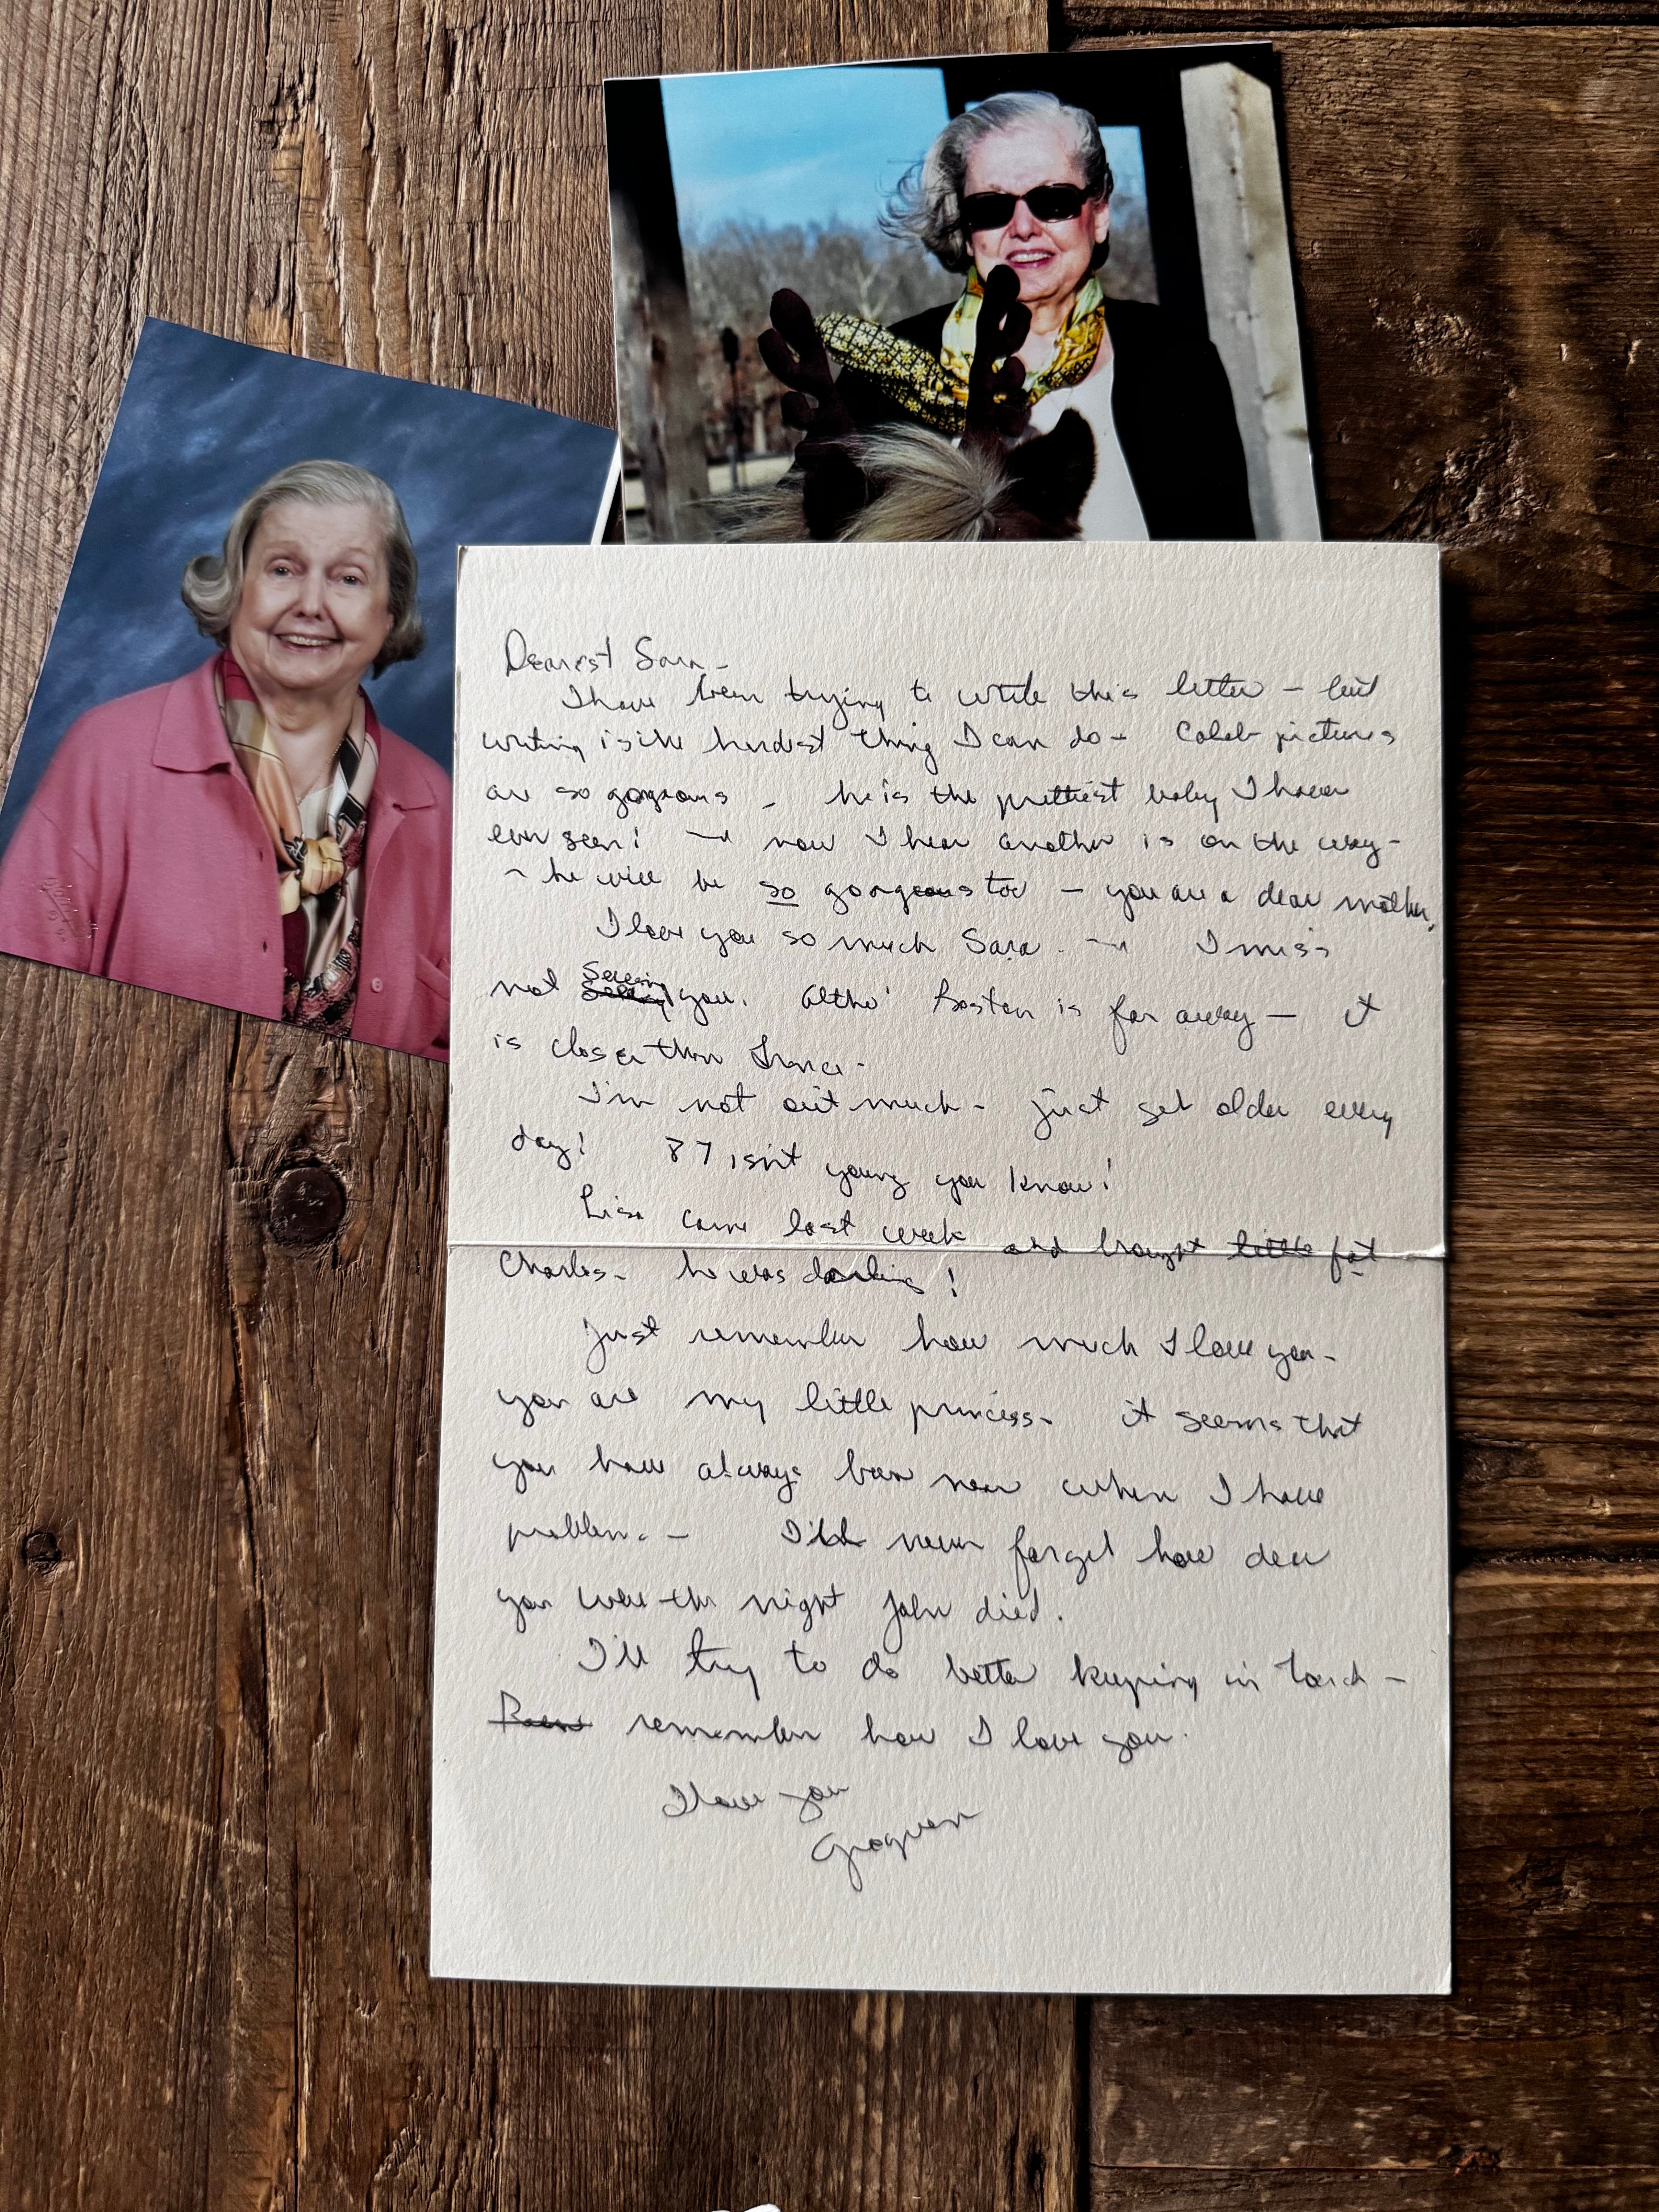 Dearest Sara –
I have been trying to write this letter – but
writing is the hardest thing I can do – Caleb pictures
are so gorgeous – he is the prettiest baby I have
ever seen! – now I hear another is on the way –
– he will be so gorgeous too – you are a dear mother.
I love you so much Sara. – I miss
not seeing you. Altho' Boston is far away – it
is closer than France.
I'm not out much – just get older every
day! 87 isn't young you know!
Lisa came last week and brought little fat
Charles – he was darling!
Just remember how much I love you –
you are my little princess – it seems that
you have always been near when I have
problems – I'll never forget how dear
you were the night John died.
I'll try to do better keeping in touch –
remember how I love you.
I love you